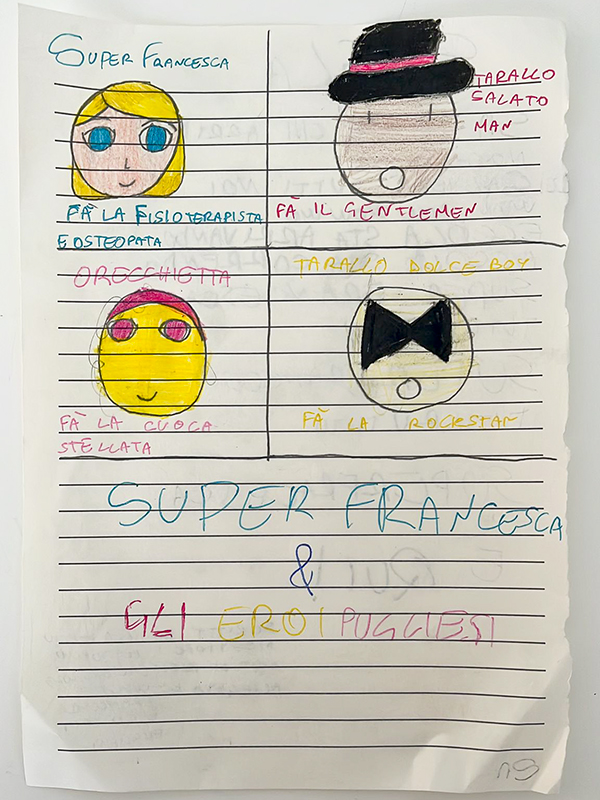 SUPER FRANCESCA
FÀ LA FISIOTERAPISTA
E OSTEOPATA
TARALLO
SALATO
MAN
FÀ IL GENTLEMEN
ORECCHIETTA
FÀ LA CUOCA
STELLATA
TARALLO DOLCE BOY
FÀ LA ROCKSTAR
SUPER FRANCESCA
&
GLI EROI PUGLIESI